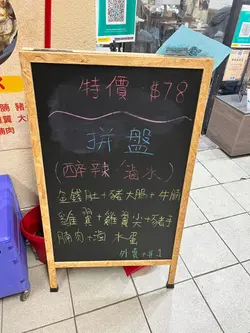 特價 $78
拼盤
(醉辣 滷水)
金錢肚+豬大腸+牛腩
雞翼+雞翼尖+豬手
腩肉+滷水蛋
外賣+$1